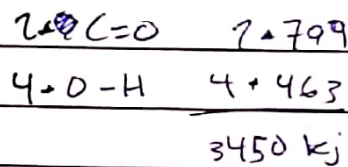 2 • C=O 2 • 799
4 • O-H 4 • 463
3450 kj